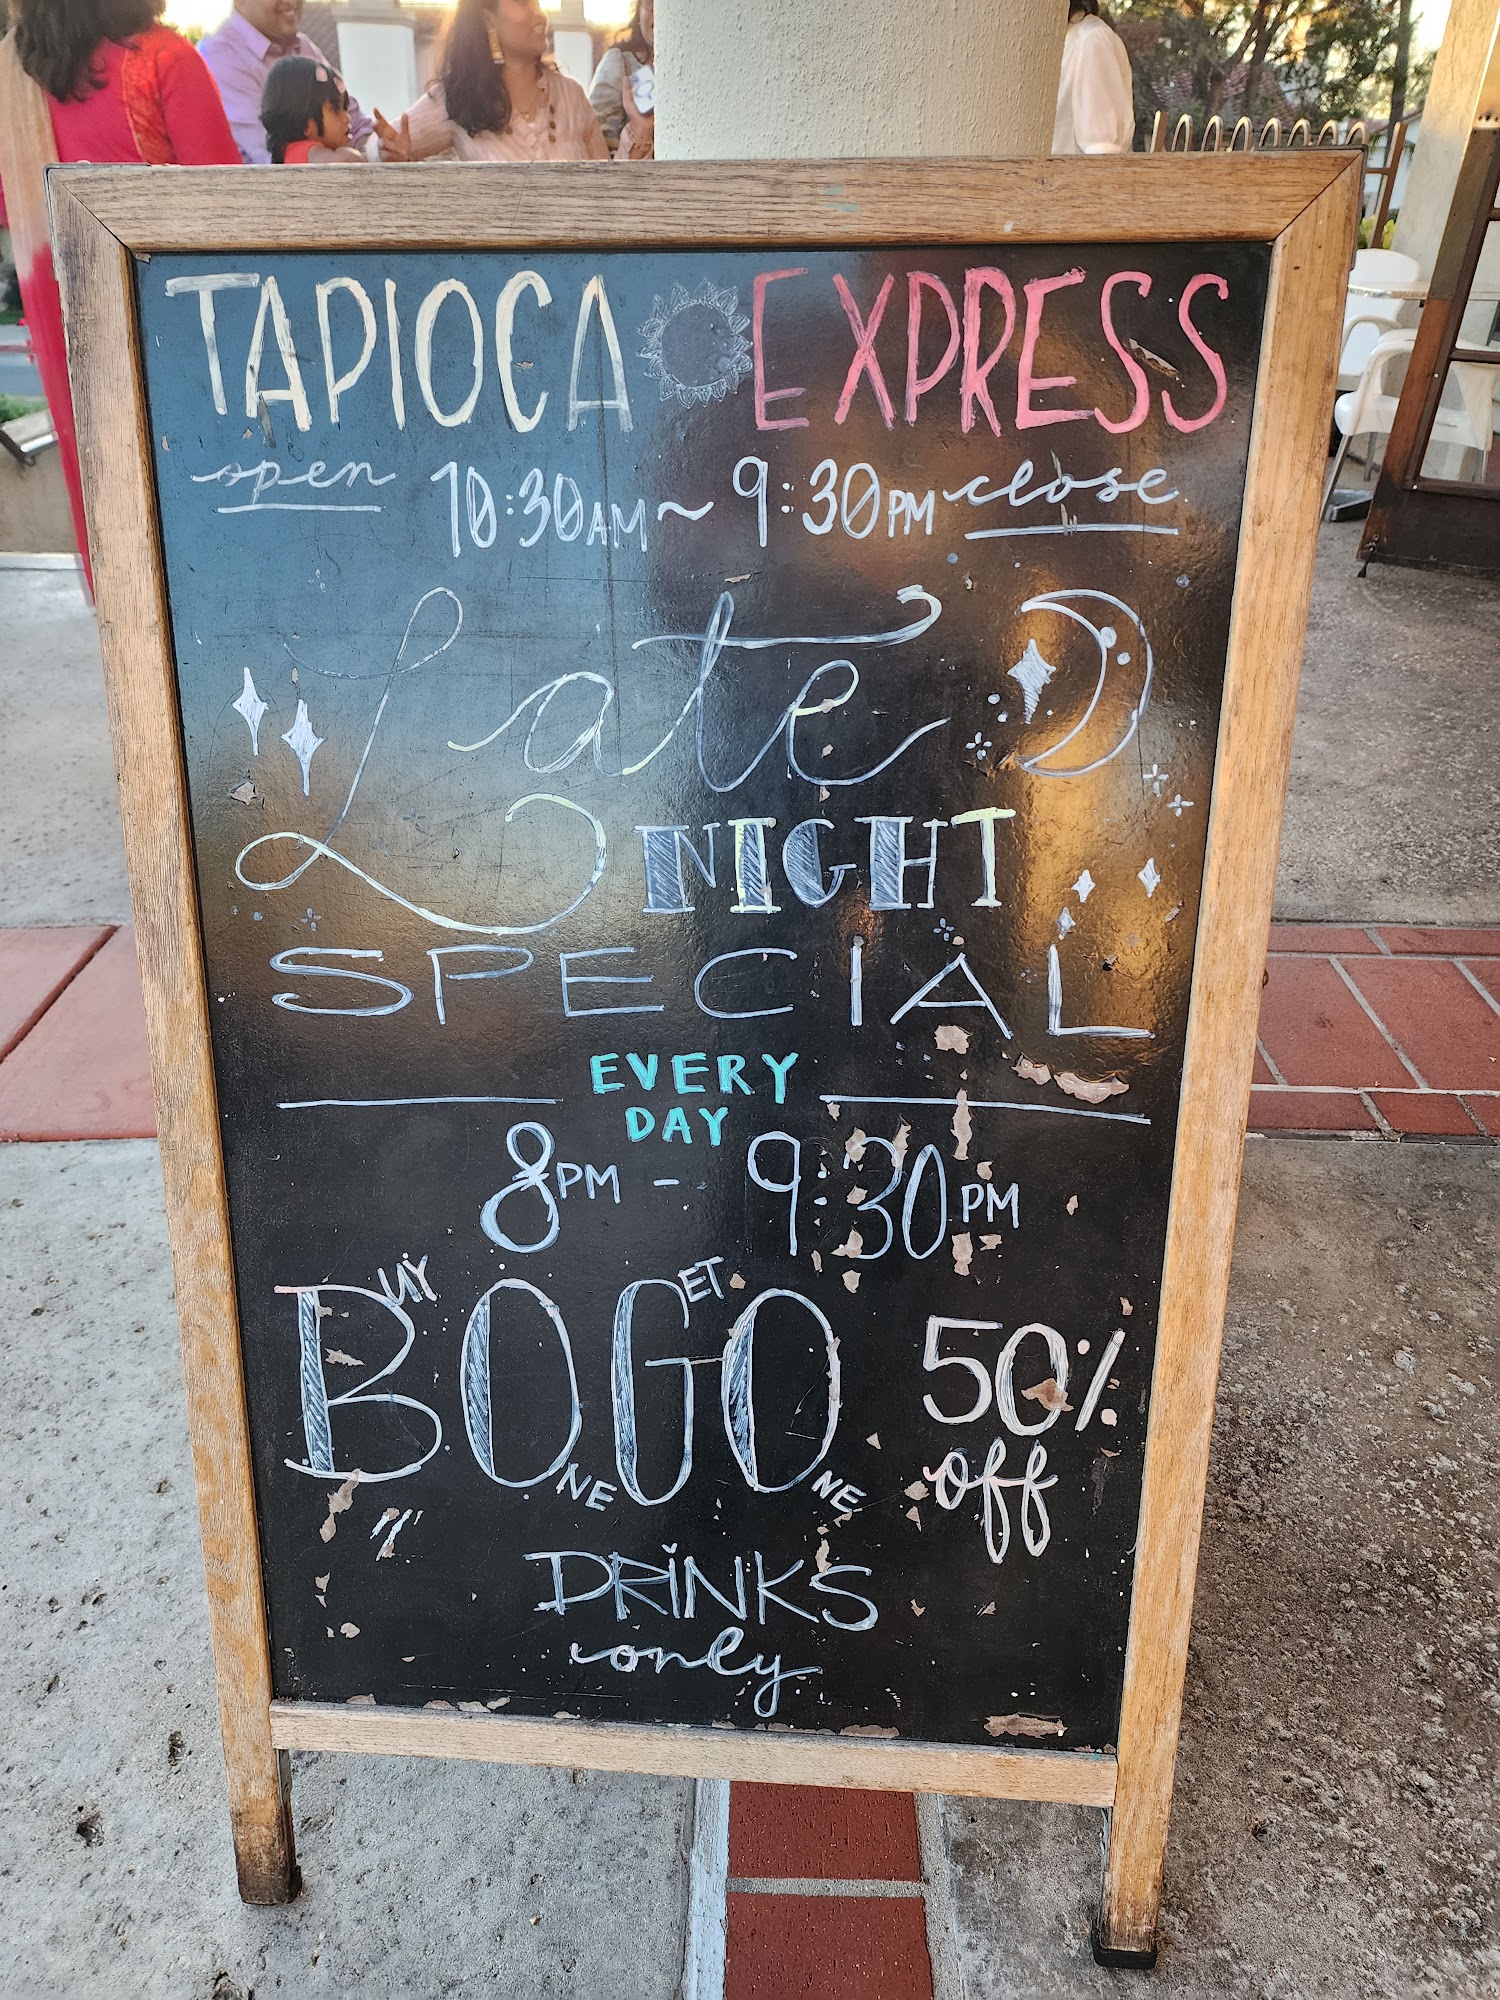 TAPIOCA EXPRESS
open 10:30AM ~ 9:30PM close
Late
NIGHT
SPECIAL
EVERY
DAY
8PM - 9:30PM
BUY ONE GET ONE 50% off
DRINKS
only